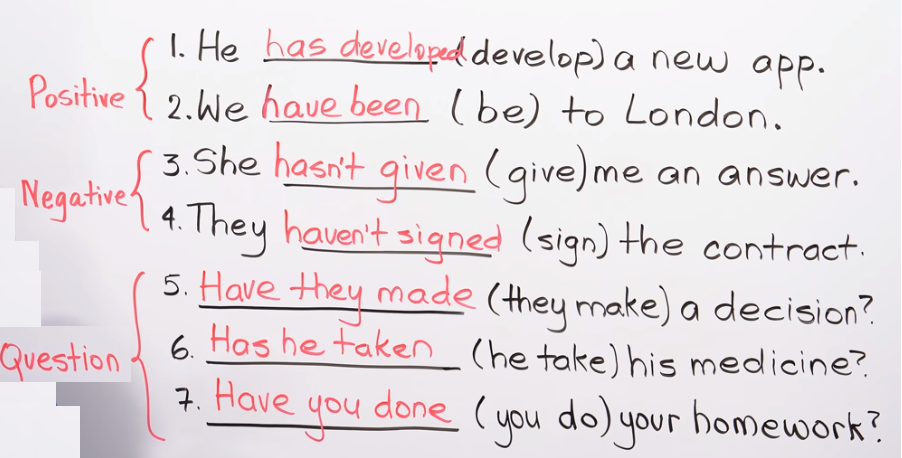 Positive
1. He has developed (develop) a new app.
2. We have been (be) to London.
Negative
3. She hasn't given (give) me an answer.
4. They haven't signed (sign) the contract.
Question
5. Have they made (they make) a decision?
6. Has he taken (he take) his medicine?
7. Have you done (you do) your homework?